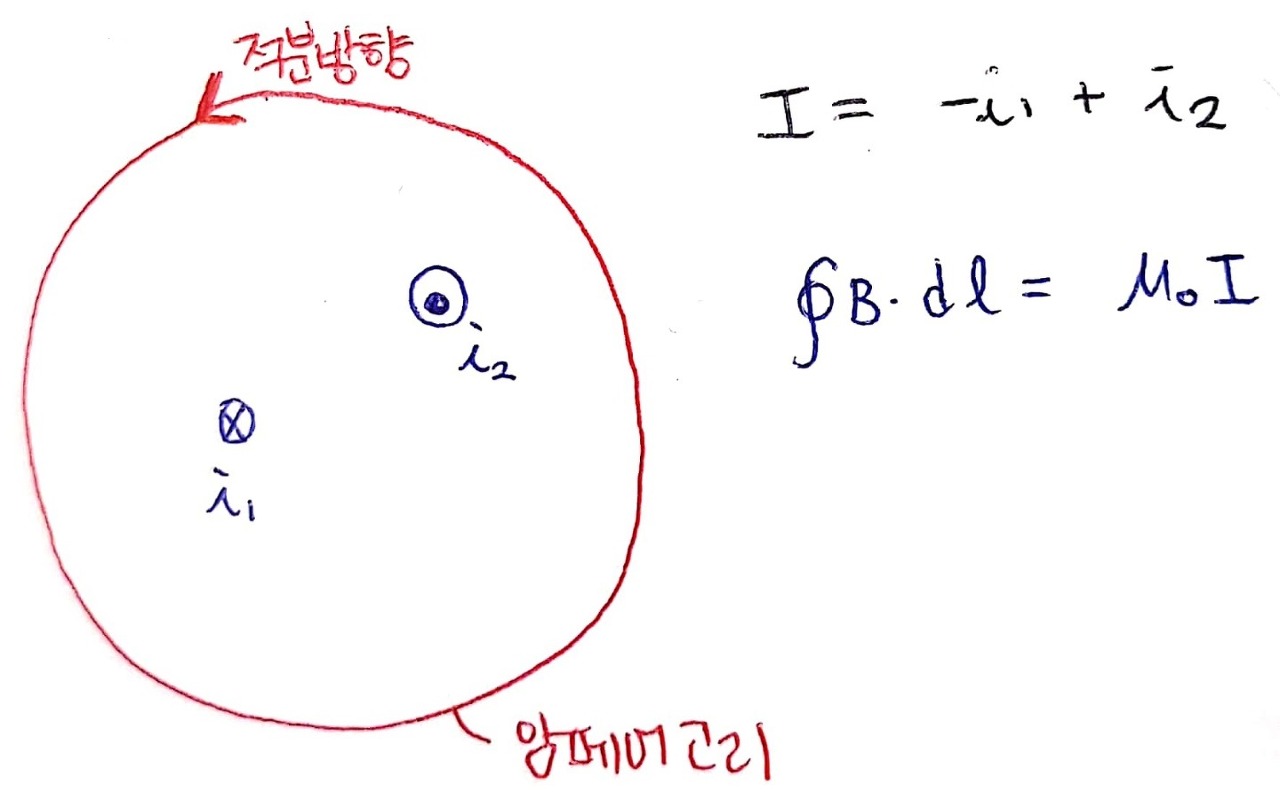 적분방향
I = -i₁ + i₂
∮B·dl = μ₀I
i₂
i₁
앙페어고리